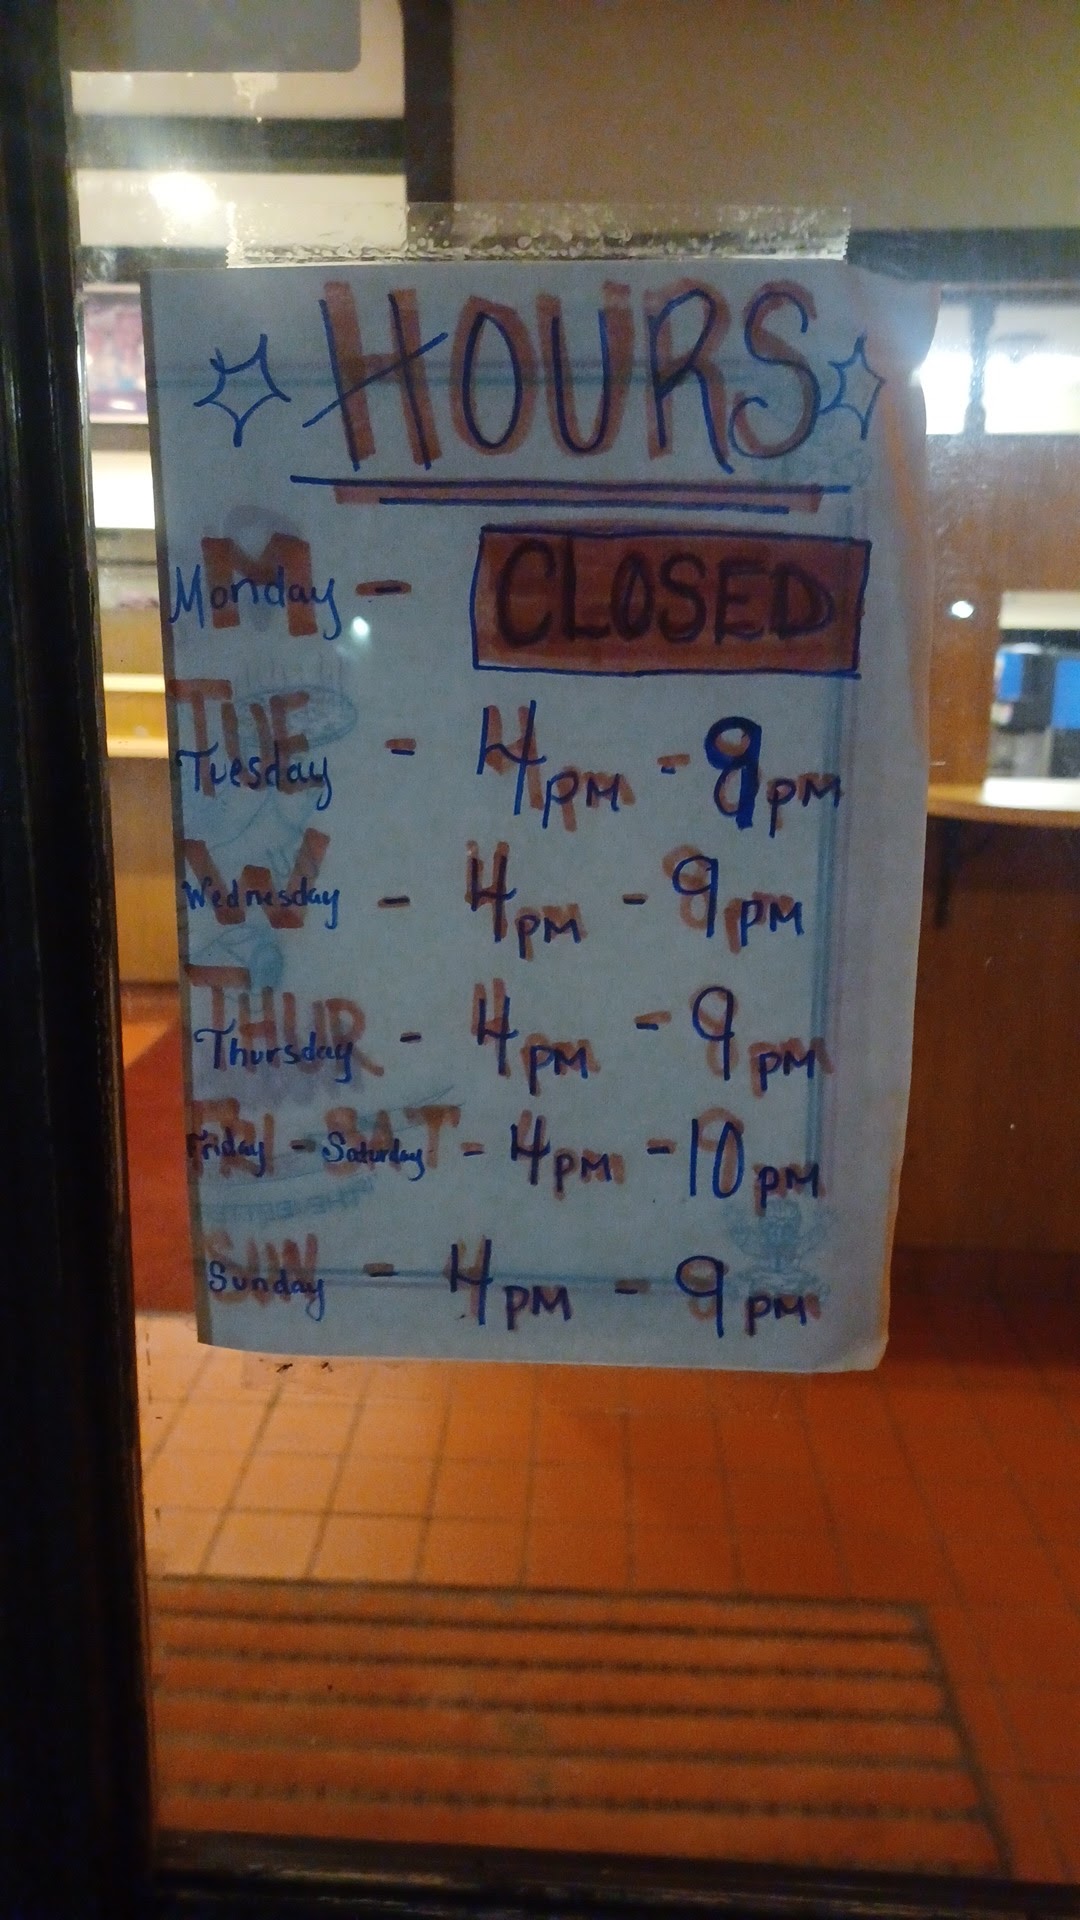 HOURS
Monday - CLOSED
Tuesday - 4pm - 9pm
Wednesday - 4pm - 9pm
Thursday - 4pm - 9pm
Friday - Saturday - 4pm - 10pm
Sunday - 4pm - 9pm